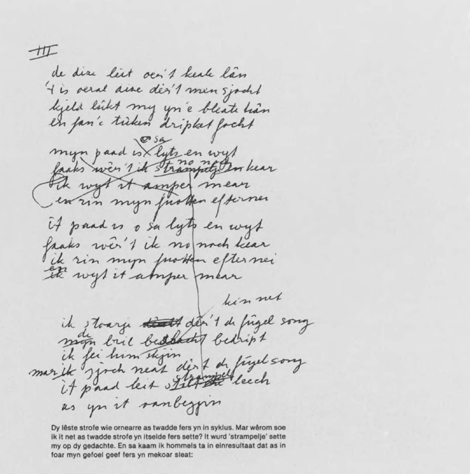 III
de dize leit oer't keale lân
't is oeral dize dêr't men sjocht
kjeld lûkt my yn'e bleate hân
en fan'e tûken dripket focht
o sa
myn paad is lyts en wyt
no noch
faaks wêr't ik strampelj en kear
ik wyt it amper mear
en rin myn fuotten efternei
it paad is o sa lyts en wyt
faaks wêr't ik no noch kear
ik rin myn fuotten efternei
en
ik wyt it amper mear
kin net
ik stoarje dêr't de fûgel song
de
myn bril bedript
ik fei him skjin
mar ik sjoch neat dêr't de fûgel song
strampel
it paad leit leech
as yn it oanbegjin
Dy lêste strofe wie earnearre as twadde fers yn in syklus. Mar wêrom soe
ik it net as twadde strofe yn itselde fers sette? It wurd 'strampelje' sette
my op dy gedachte. En sa kaam ik hommels ta in einresultaat dat as in
foar myn gefoel geef fers yn mekoar sleat: